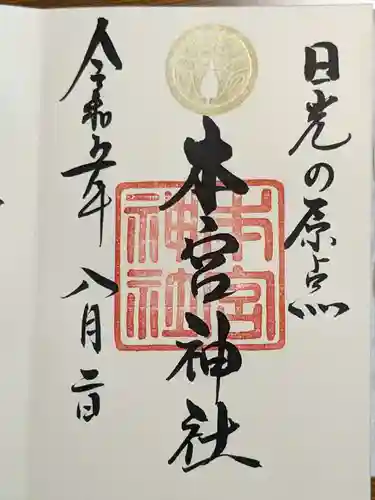 日光の原点
本宮神社
本宮
神社
令和五年 八月二日